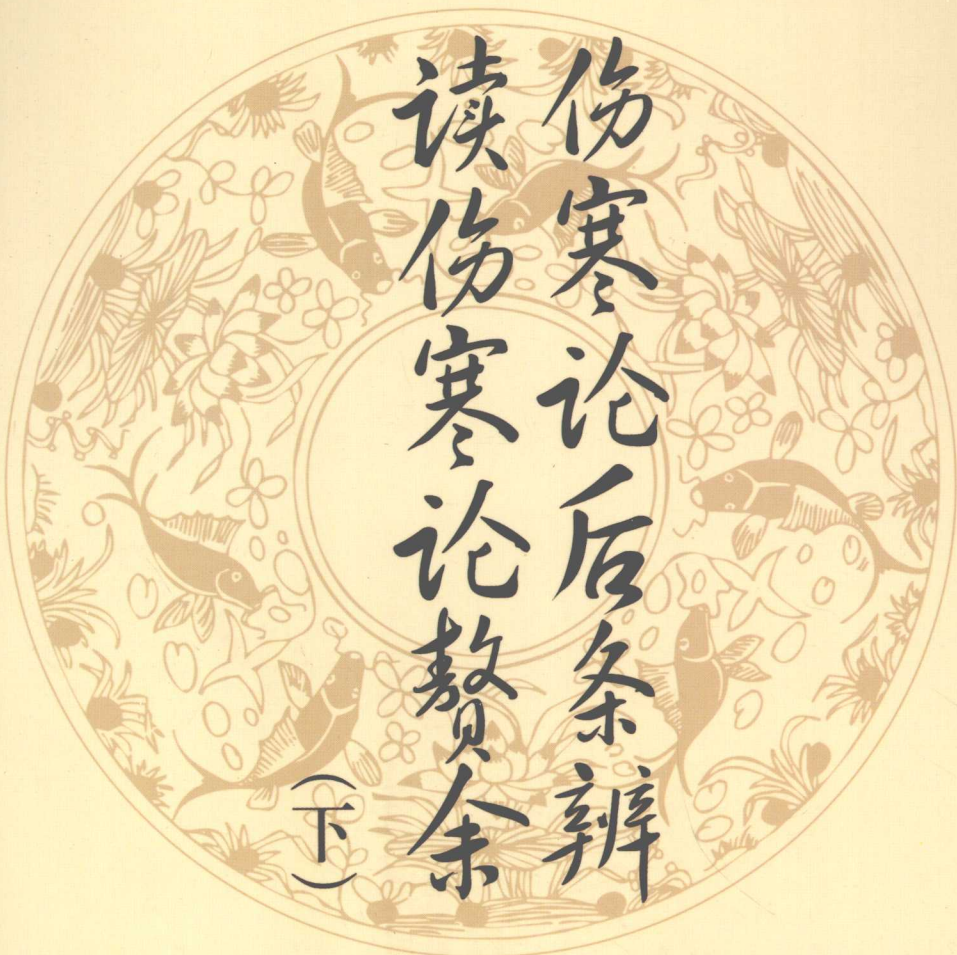 伤寒论后条辨
读伤寒论赘余
（下）